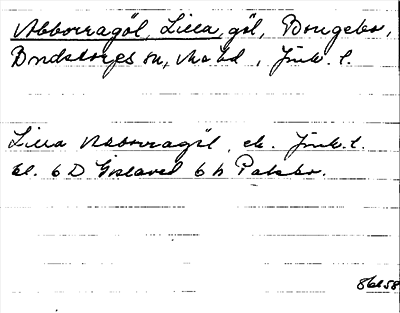 Abborragöl, Lilla, göl, Bongebo,
Bondstorps sn, Mo hd, Jönk. l.
Lilla Abborragöl, ek. Jönk. l.
bl. 6 D Gislaved 6 h Palsbo.
8bl58